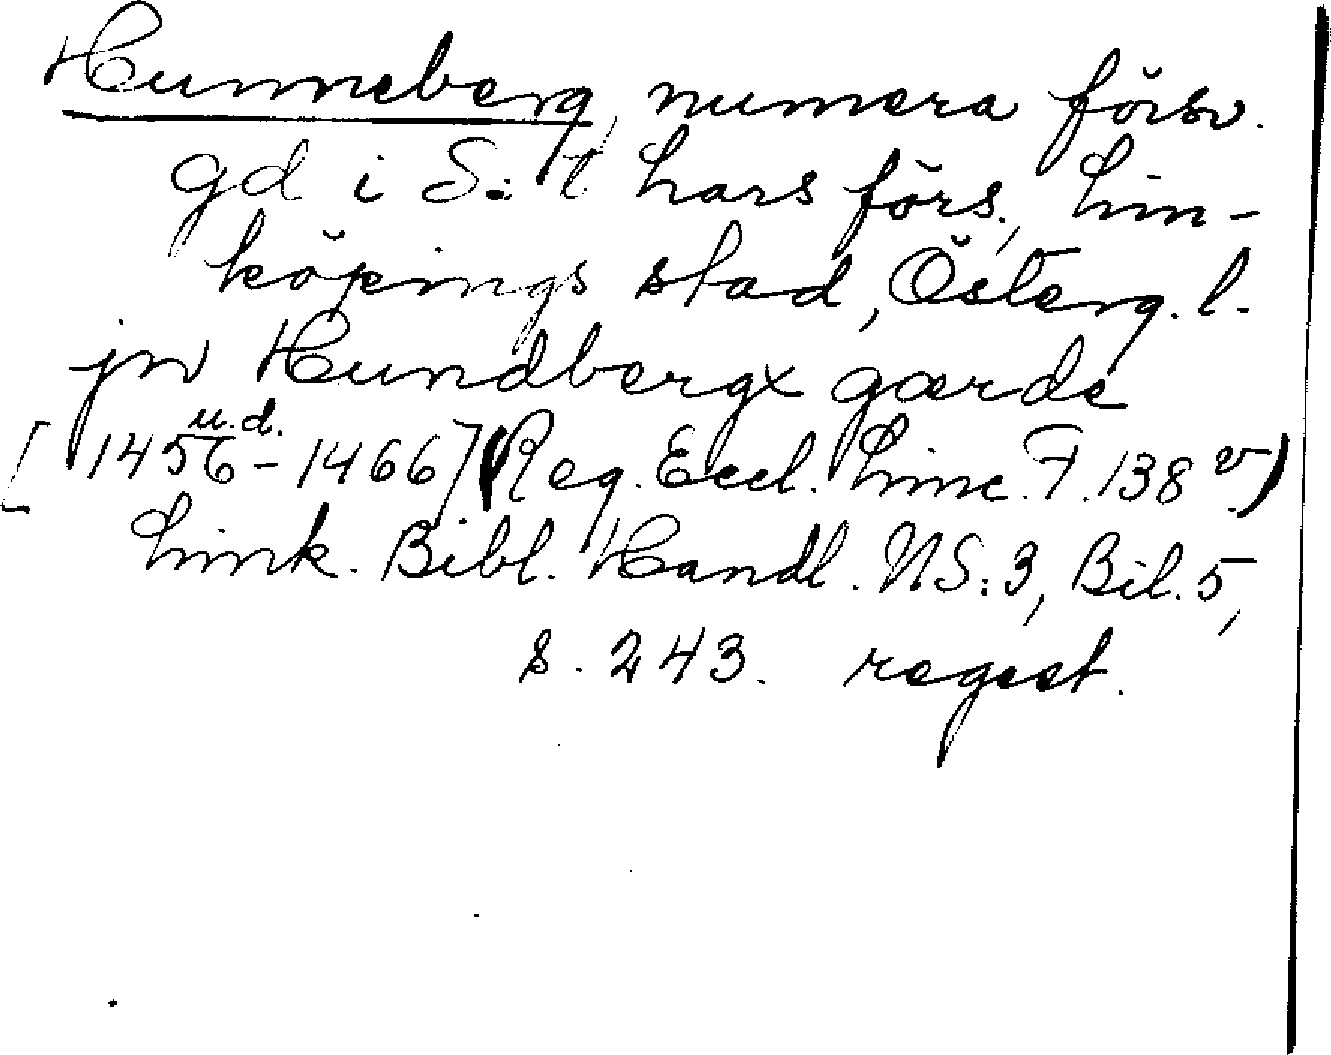 Hunneberg, numera försv.
gd i S:t Lars förs., Lin-
köpings stad, Österg. l.
jn Hundbergx gærde
u. d.
[1456-1466] (Reg. Eccl. Linc. F. 138 v)
Link. Bibl. Handl. NS:3, Bil. 5,
s. 243. regest.